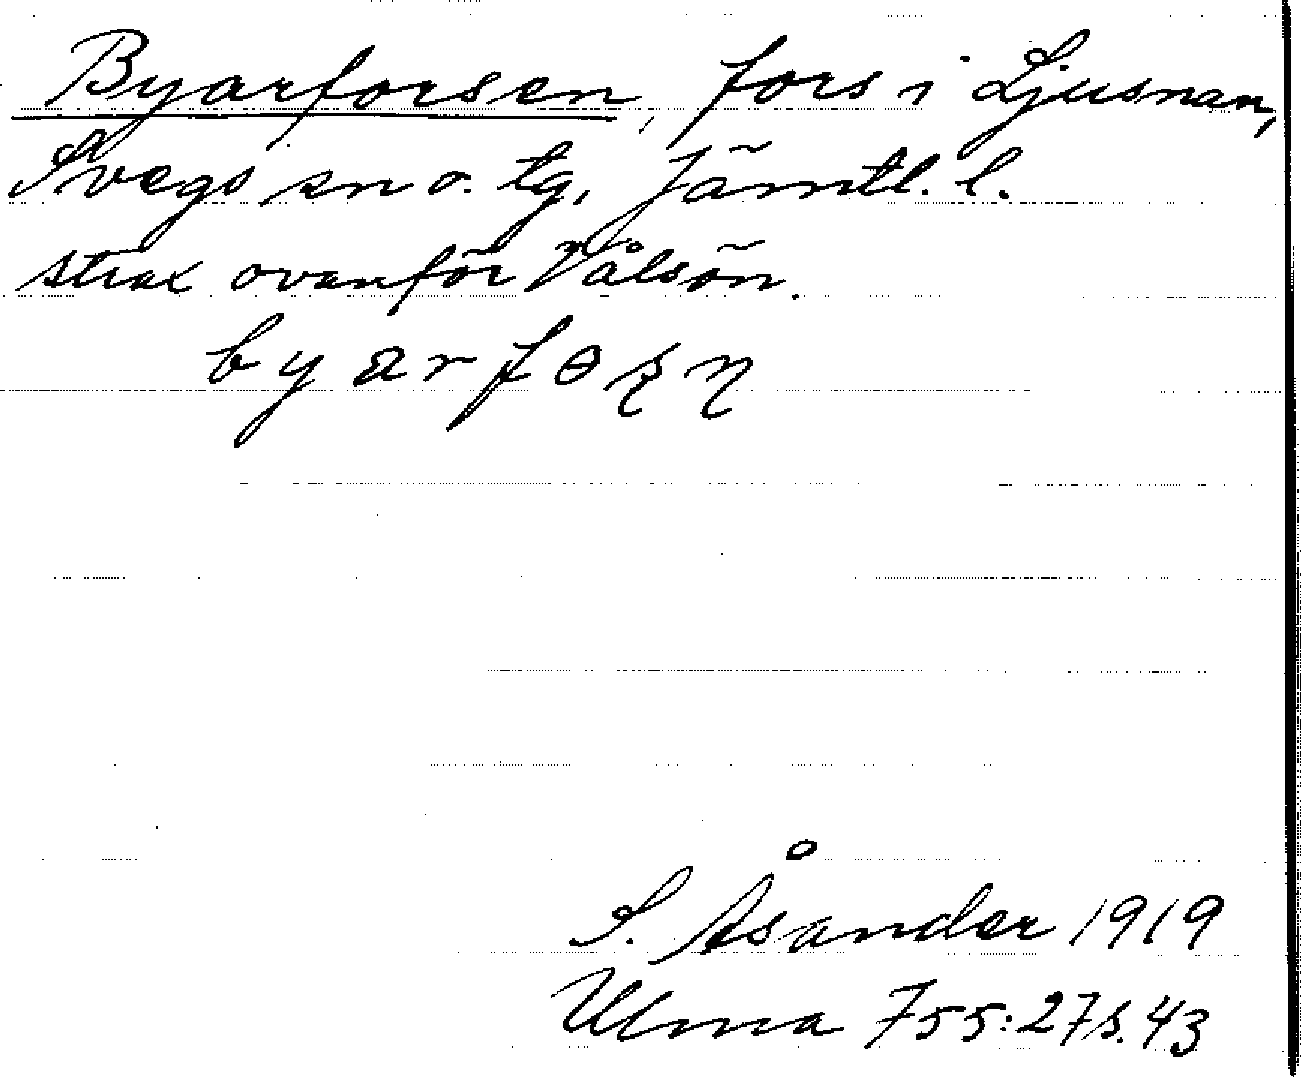 Byarforsen, fors i Ljusnan,
Svegs sn o. tg, Jämtl. l.
strax ovanför Vålsön.
byarfoʂn̥
S. Åsander 1919
Ulma 755:27 s. 43